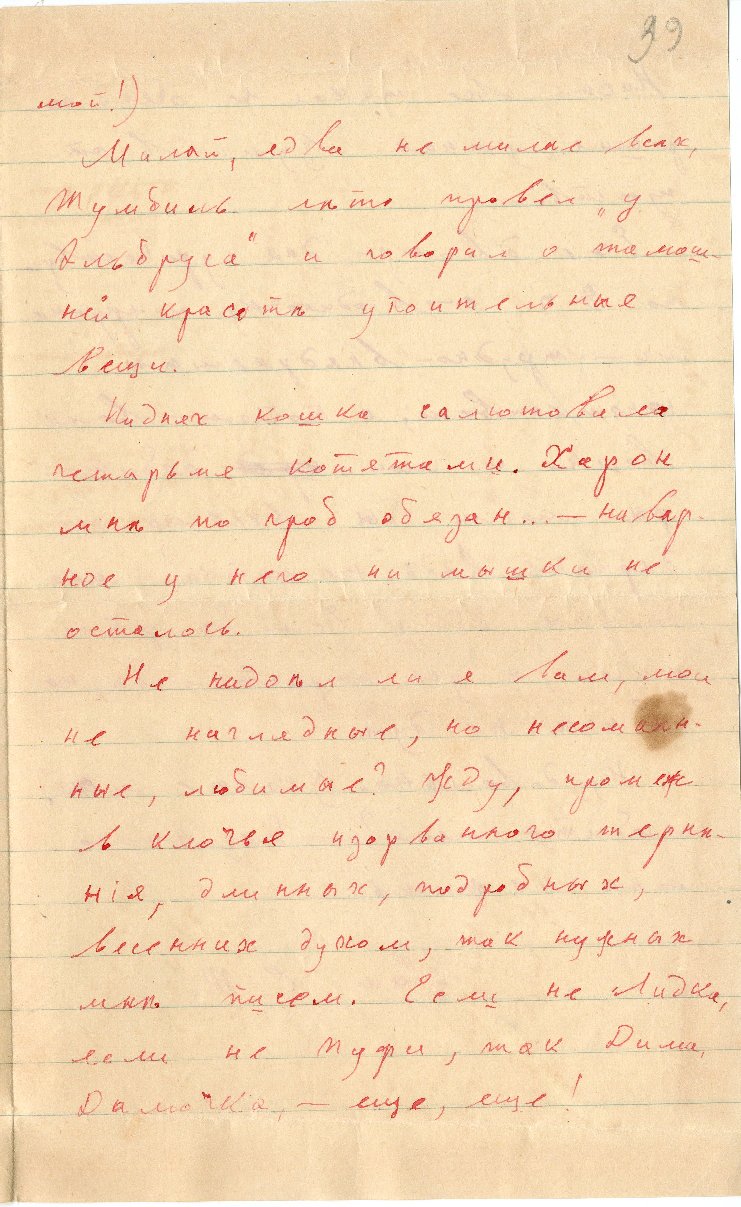 39
мой!)
Милый, едва не милее всех,
Жумбиль лѣто провел „у
Эльбруса" и говорил о тамош-
ней красотѣ упоительные
вещи.
Надняx кошка салютовала
четырьмя котятами. Харон
мнѣ по гроб обязан... — навѣр-
ное у него ни мышки не
осталось.
Не надоѣл ли я вам, мои
не наглядные, но несомнѣн-
ные, любимые? Жду, промеж
в клочья изорванного терпѣ-
нія, длинных, подробных,
весенних духом, так нужных
мнѣ писем. Если не Лидка,
если не Пуфи, так Дима,
Дамочка, — еще, еще!